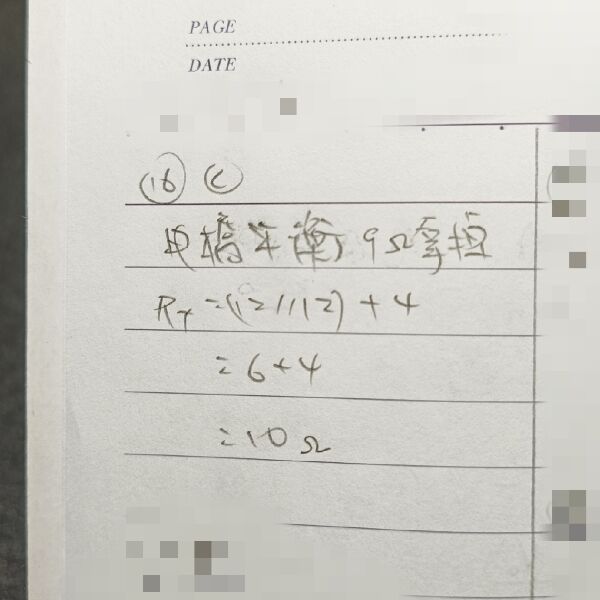 PAGE
DATE
(16) (C)
电桥平衡 9Ω拿掉
R_T=(12//12)+4
=6+4
=10Ω